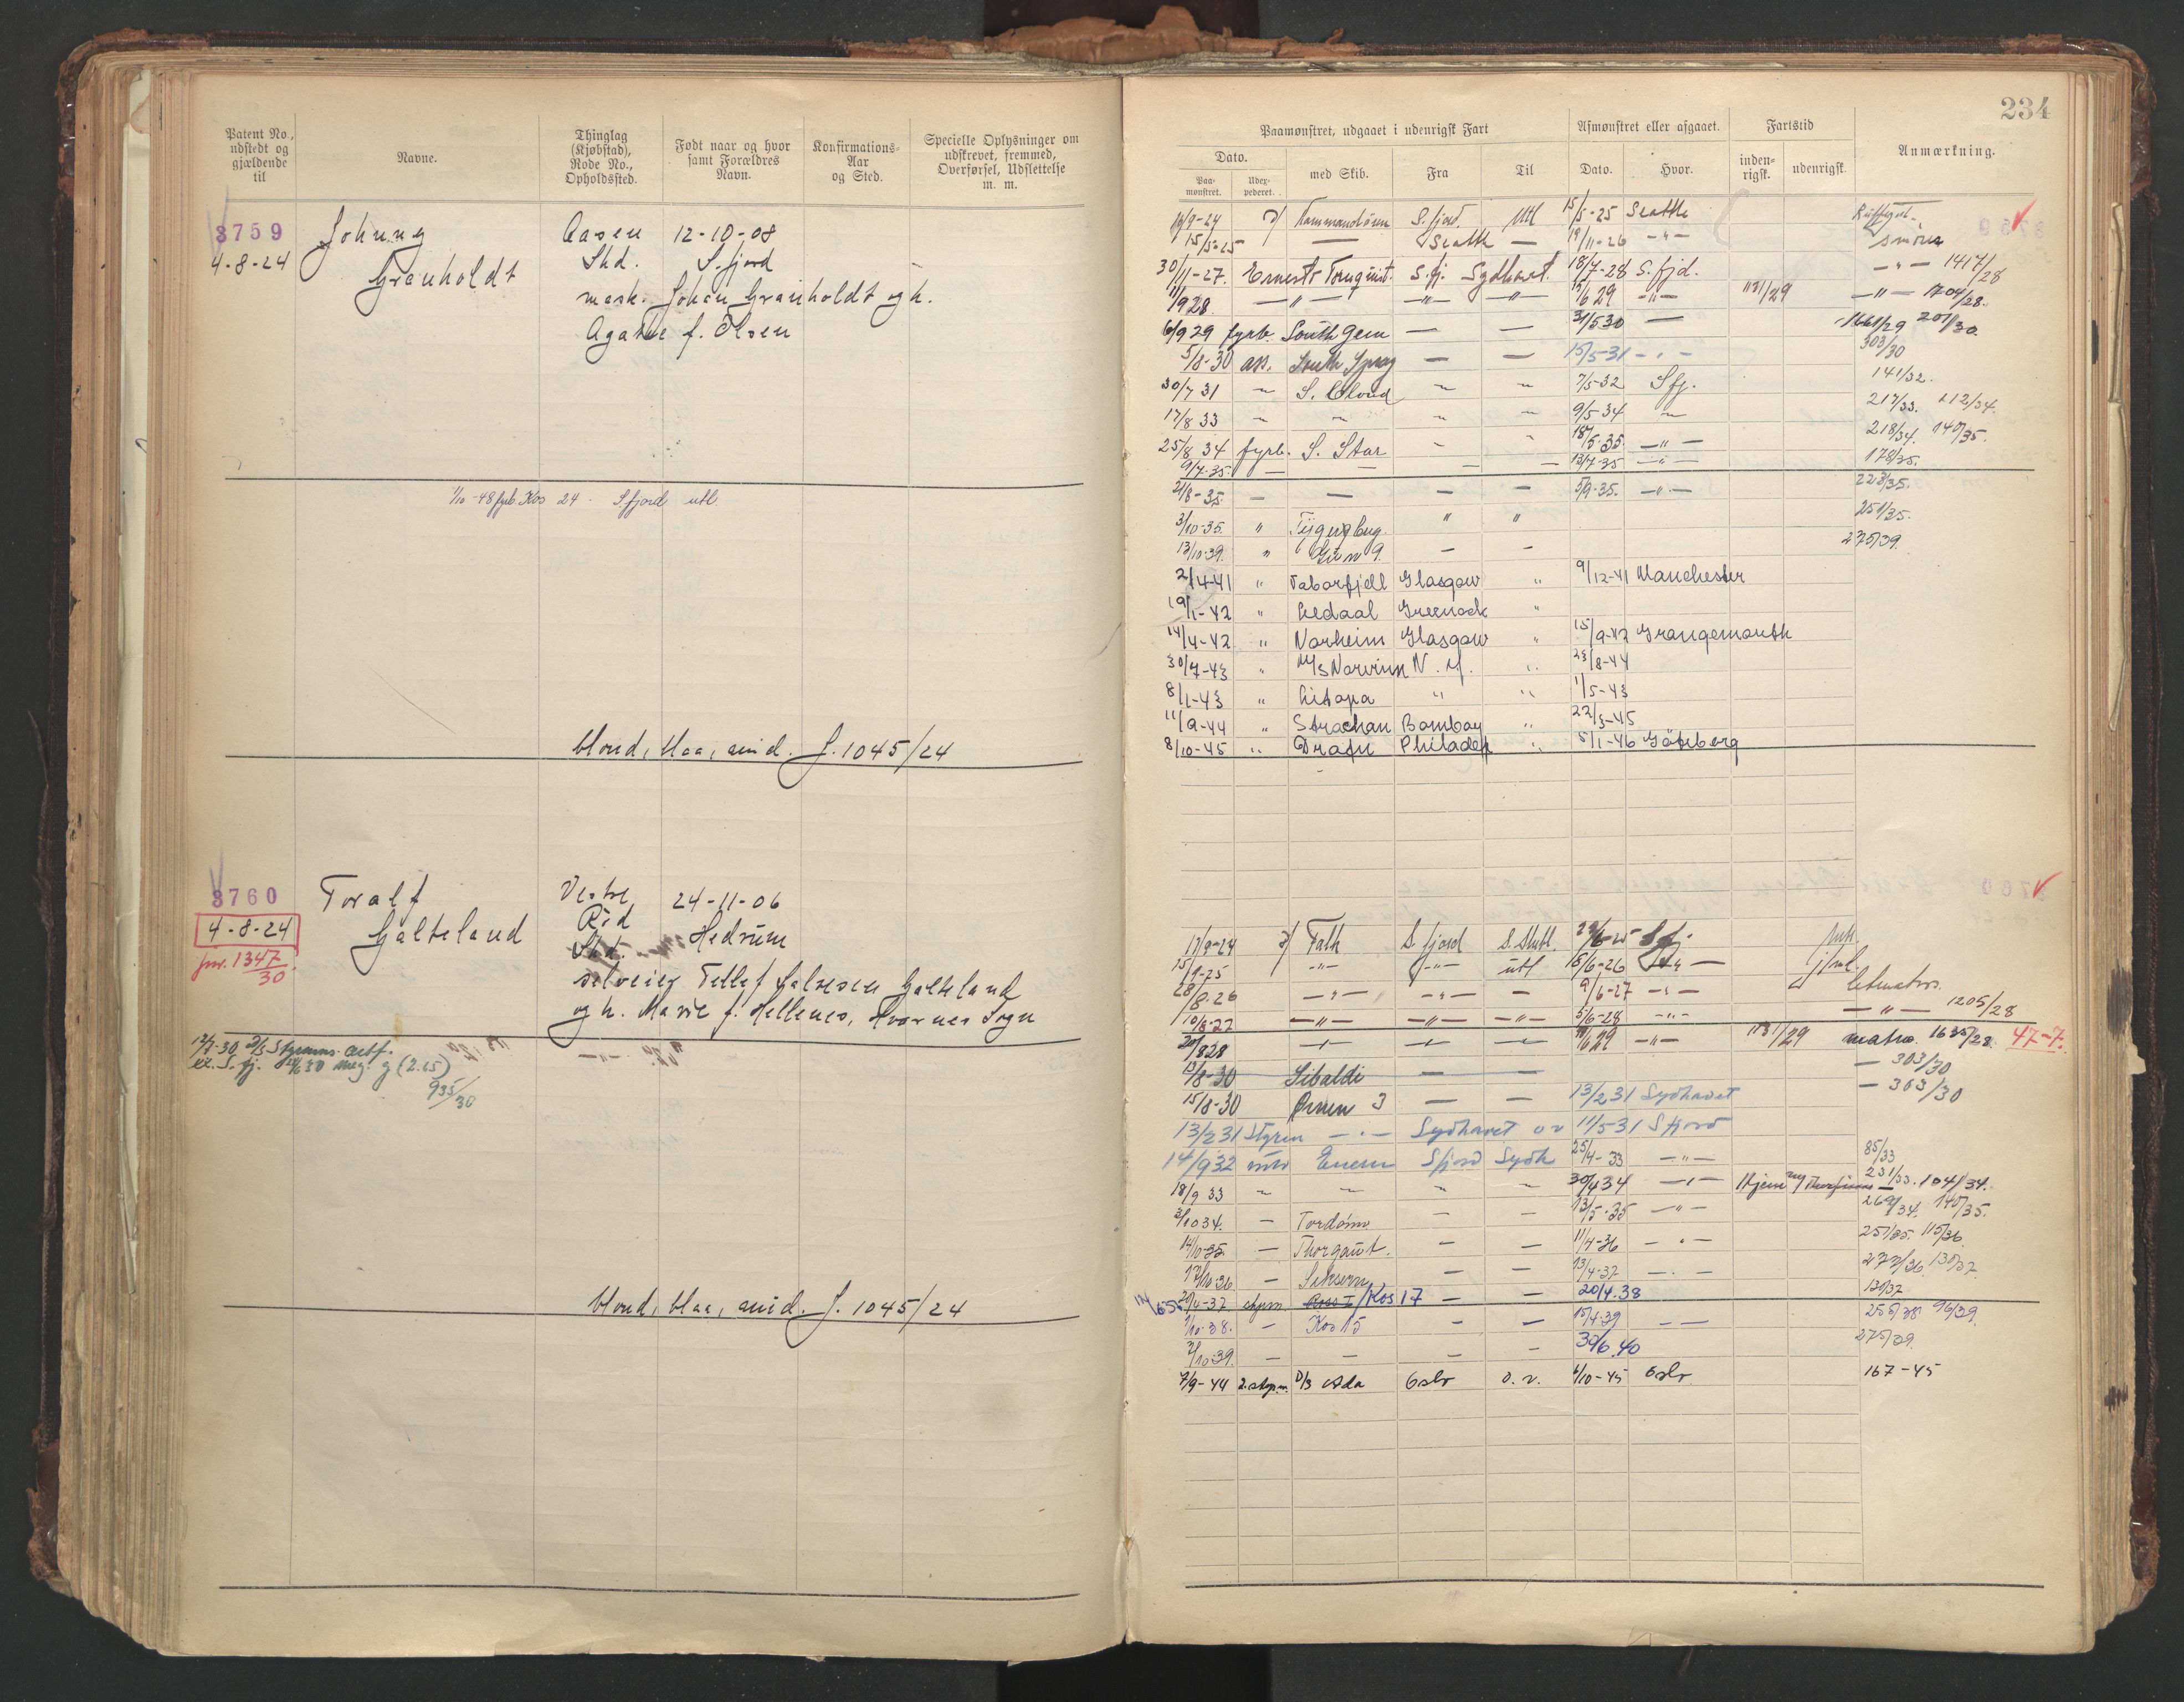 Patent No., udstedt og gjældende til
Navne.
Thinglag (Kjøbstad), Rode No., Opholdssted.
Født naar og hvor samt Forældres Navn.
Konfirmations-Aar og Sted.
Specielle Oplysninger om udskrevet, fremmed, Overførsel, Udslettelse m. m.
3759 Johnny Aasen 12-10-08
4-8-24 Granholdt Skd. S.fjord
mask. Johan Granholdt og h.
Agathe f. Olsen
1/10-48 fyrb. Kos 24 - S.fjord utl.
blond, blaa, mid. J. 1045/24
3760 Toralf Vestre 24-11-06
4-8-24 Galteland Rød Hedrum
jnr. 1347/30. Skd.
selveier Tellef Galteland
og h. Marie f. Hellenes, Hvarnes Sogn
S. fj. 
935/30
blond, blaa, mid. J. 1045/24
234
Paamønstret, udgaaet i udenrigsk Fart
Afmønstret eller afgaaet.
Fartstid
Anmærkning.
Dato.
Paa-mønstret.
Udex-pederet.
med Skib.
Fra
Til
Dato.
Hvor.
inden-rigsk.
udenrigsk.
16/9-24 Kommandøren S.fjord. Utl 15/5-25 Seattle
15/5-25 — Seattle — 19/11-26 -"-
30/11-27. Ernesto Tornquist. S.fj. Sydhavet. 18/7-28 S.fjd. -"- 1417/28
11/9 28 -"- -"- -"- 5/6 29 -"- 1/29 -"- 1704/28.
6/9 29 fyrb. South Gem — — 31/5 30 — 1661/29 201/30.
5/8-30 ass. South Spray — — 15/5-31 -"- 303/30
30/7 31 " S. Cloud " " 7/5-32 Sfj. 141/32.
17/8 33 " " " " 9/5-34 " 217/33. 112/34.
25/8 34 fyrb. S. Star " " 18/5-35. -"- 218/34. 140/35.
9/7-35. — — — — 13/7-35 -"- 178/35.
21/8-35. — — — — 5/9-35. -"- 223/35.
3/10-35. " Tygerberg " " 251/35.
13/10-39. " Gun 9. — — 275/39.
2/4-41 " Taborfjell Glasgow " 9/12-41 Manchester
19/1-42 " Ledaal Greenock "
14/4-42 " Norheim Glasgow " 15/9-42 Grangemouth
30/7-43 " M/S Norvinn N.Y. " 23/8-44
8/1-43 " " " 1/5-43
11/9-44 " Strachan Bombay " 22/3-45
8/10-45 " Drafn Philadelp " 5/1-46 Göteborg
3760
17/9-24 Falk S.fjord S. Shetl. 22/6-25 S.f.
15/9-25 -"- -"- utl 15/6-26 -"-
28/8-26 -"- -"- — 9/6-27 -"- letmatros.
10/8-27 -"- -"- -"- 5/6-28 -"- -"- 1205/28
20/8 28 -"- — — 11/6 29 -"- 1/29 matros. 1635/28. 47-7.
13/8-30 Sibaldi — — — 303/30
15/8-30 Ørnen 3 — — 13/2 31 Sydhavet — 363/30
13/2 31 Styrm -"- Sydhavet 11/5 31 Sfjord
14/9 32 Enern Sfjord Sydh 25/4-33 -"- 85/33
18/9 33 " " " " 30/4 34 -"- 231/33. 104/34.
2/10 34. — Tordønn — — 13/5-35 -"- 269/34. 140/35.
14/10-35. — Thorgaut. — — 11/4-36 -"- 257/35. 115/36
12/10-36 — Seksern — — 13/4-37 -"- 277/36. 130/37
20/4-37 styrm Kos 17 — — 20/4.38 130/37
1/10-38. — Kos 15 — — 15/4-39 — 255/38. 96/39.
2/10-39. — — — — 30/6.40 275/39.
7/9-44 2.styrm. D/S Ada Oslo o.v. 6/10-45 Oslo 167-45